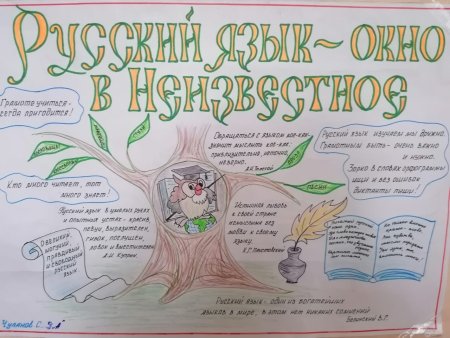 Русский язык ~ окно
в Неизвестное
Грамоте учиться -
всегда пригодится!
Кто много читает, тот
много знает!
Обращаться с языком кое-как-
значит мыслить кое-как:
приблизительно, неточно,
неверно.
А.Н.Толстой
Русский язык изучаем мы дружно.
Грамотным быть - очень важно
и нужно.
Зорко в словах орфограммы
ищи и без ошибок
диктанты пиши!
песни
Русский язык в умелых руках
и опытных устах - красив,
певуч, выразителен,
гибок, послушен,
ловок и вместителен
А.И. Куприн
О великий,
могучий,
правдивый
и свободный
русский
язык
Истинная любовь
к своей стране
немыслима без
любви к своему
языку.
К.Г. Паустовский
Русский язык - один из богатейших
языков в мире, в этом нет никаких сомнений
Белинский В.Г.
Чулянов С. 3"А"